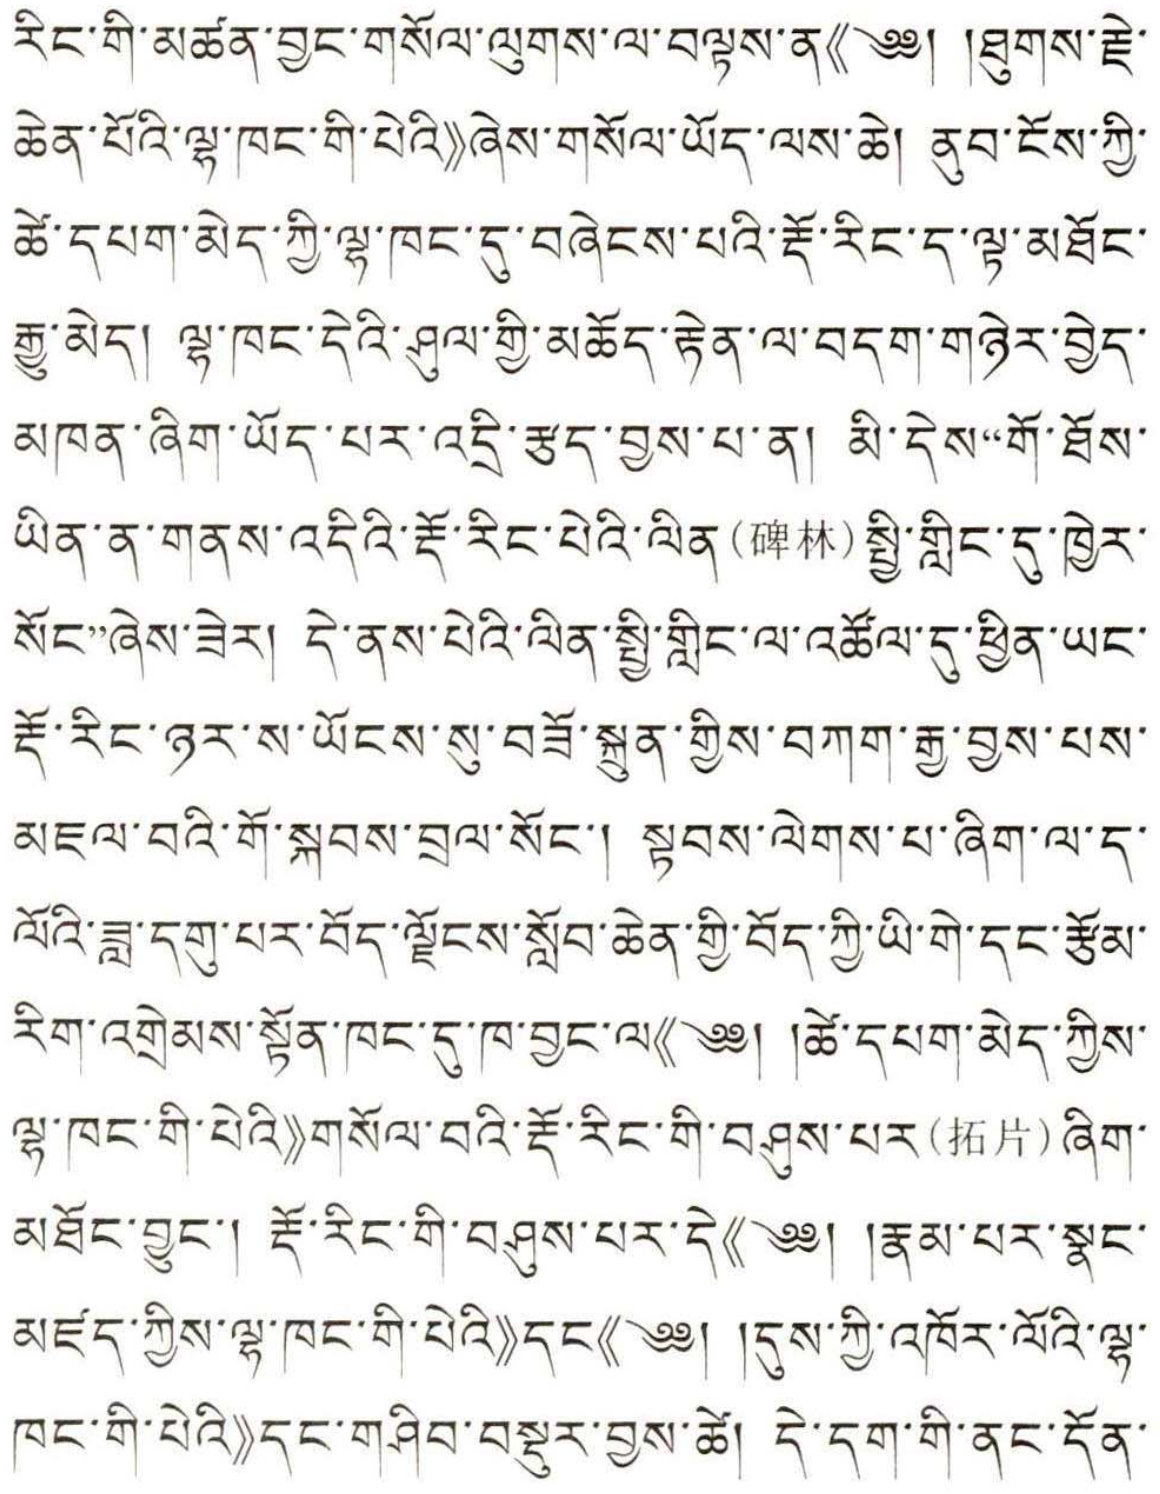 རིང་གི་མཚན་བྱང་གསོལ་ལུགས་ལ་བལྟས་ན《༄༅། །ཐུགས་རྗེ་
ཆེན་པོའི་ལྷ་ཁང་གི་པེའི》ཞེས་གསོལ་ཡོད་ལས་ཆེ། ནུབ་ངོས་ཀྱི་
ཚེ་དཔག་མེད་ཀྱི་ལྷ་ཁང་དུ་བཞེངས་པའི་རྡོ་རིང་ད་ལྟ་མཐོང་
རྒྱུ་མེད། ལྷ་ཁང་དེའི་ཤུལ་གྱི་མཆོད་རྟེན་ལ་བདག་གཉེར་བྱེད་
མཁན་ཞིག་ཡོད་པར་འདྲི་རྩད་བྱས་པ་ན། མི་དེས“གོ་ཐོས་
ཡིན་ན་གནས་འདིའི་རྡོ་རིང་པེའི་ལིན(碑林)སྤྱི་གླིང་དུ་ཁྱེར་
སོང”ཞེས་ཟེར། དེ་ནས་པེའི་ལིན་སྤྱི་གླིང་ལ་འཚོལ་དུ་ཕྱིན་ཡང་
རྡོ་རིང་ཉར་ས་ཡོངས་སུ་བཟོ་སྐྲུན་གྱིས་བཀག་རྒྱ་བྱས་པས་
མཇལ་བའི་གོ་སྐབས་བྲལ་སོང་། སྟབས་ལེགས་པ་ཞིག་ལ་ད་
ལོའི་ཟླ་དགུ་པར་བོད་ལྗོངས་སློབ་ཆེན་གྱི་བོད་ཀྱི་ཡི་གེ་དང་རྩོམ་
རིག་འགྲེམས་སྟོན་ཁང་དུ་ཁ་བྱང་ལ《༄༅། །ཚེ་དཔག་མེད་ཀྱིས་
ལྷ་ཁང་གི་པེའི》གསོལ་བའི་རྡོ་རིང་གི་བཤུས་པར(拓片)ཞིག་
མཐོང་བྱུང་། རྡོ་རིང་གི་བཤུས་པར་དེ《༄༅། །རྣམ་པར་སྣང་
མཛད་ཀྱིས་ལྷ་ཁང་གི་པེའི》དང《༄༅། །དུས་ཀྱི་འཁོར་ལོའི་ལྷ་
ཁང་གི་པེའི》དང་གཤིབ་བསྡུར་བྱས་ཚེ། དེ་དག་གི་ནང་དོན་